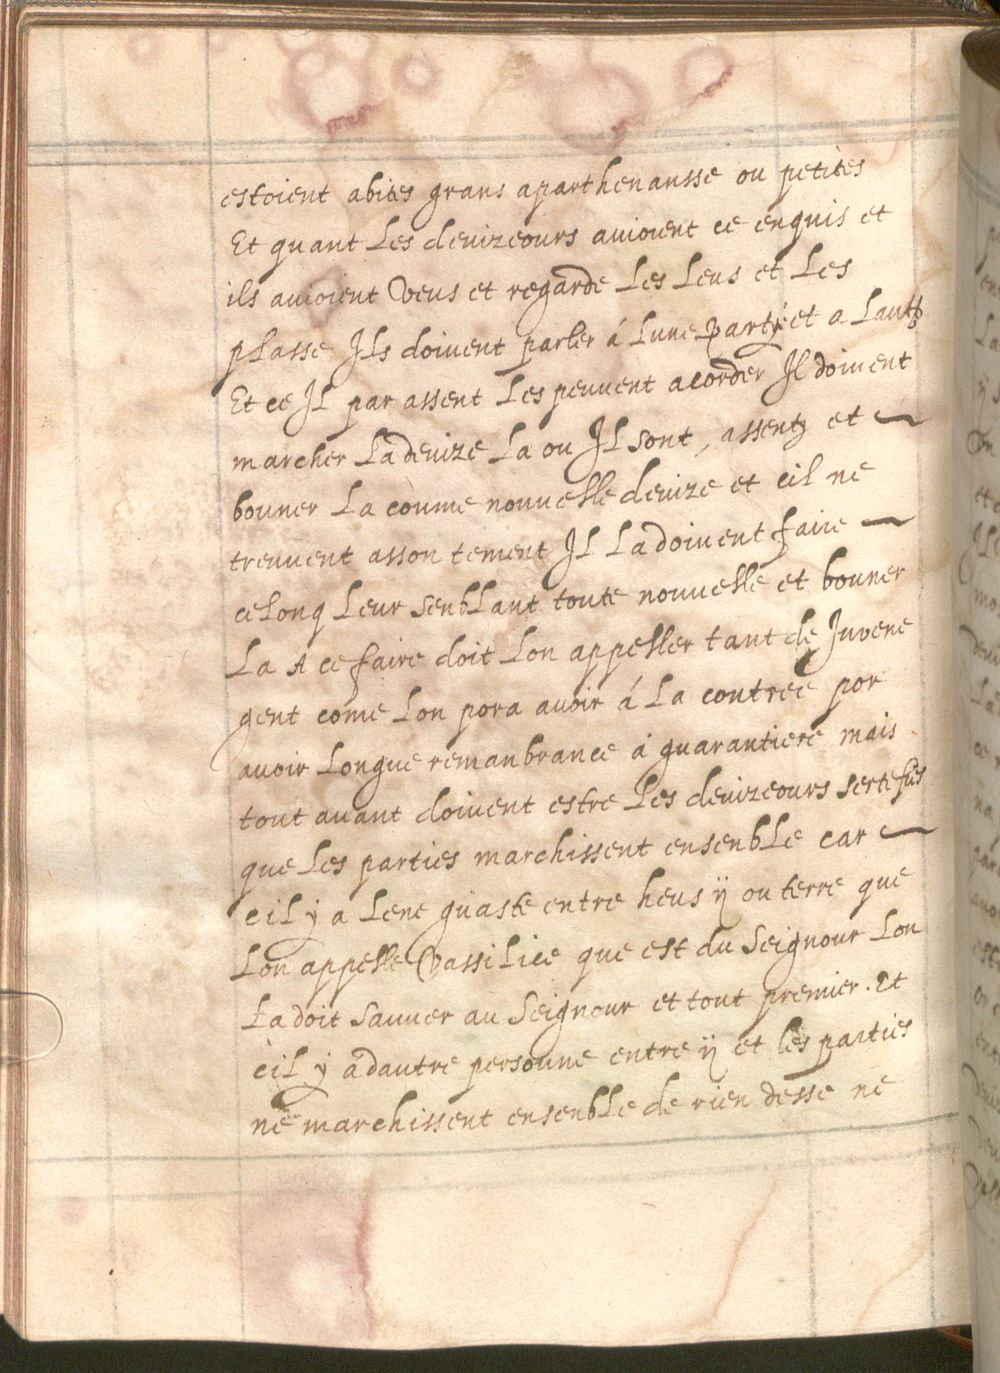 estoient abites grans aparthenansse ou petites
Et quant Les devizeours avioient ce enquis et
ils avioient Veus et regarde Les Leus et Les
plasse Ils doivent parler á Lune Party et a Lautre
Et ce Il par assent Les peuvent acorder Il doivent
marcher La devize La ou Il sont, assentz et
bouner La coume nouvelle devize et cil ne
treuvent asson tement Il La doivent faire
celonq Leur senblant toute nouvelle et bouner
La A ce faire doit Lon appeller tant de Juvene
gent come Lon pora avoir á La contree por
avoir Longue remanbrance á guarantiere mais
tout avant doivent estre Les devizeours sertefiés
que Les parties marchissent ensenble car
cil ÿ a Lene guaste entre heus ÿ ou terre que
Lon appelle Vassilice que est du Seignour Lon
La doit Sauver au Seignour et tout premier. Et
cil ÿ a dautre persoune entre ÿ et les parties
ne marchissent ensenble de rien desse ne